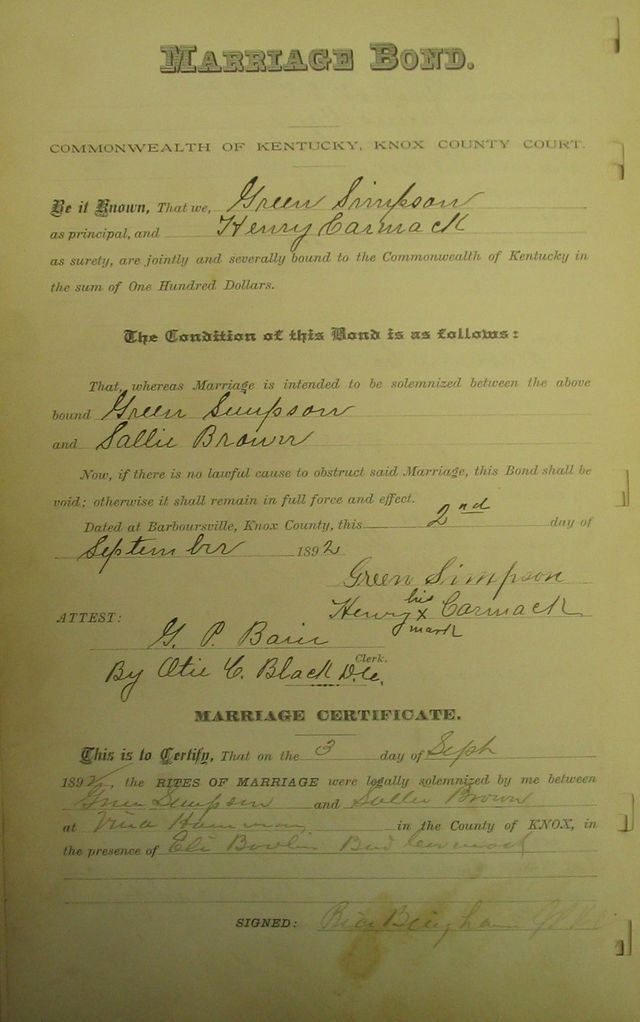 MARRIAGE BOND.
COMMONWEALTH OF KENTUCKY, KNOX COUNTY COURT.
Be it Known, That we, Green Simpson
as principal, and Henry Carmack
as surety, are jointly and severally bound to the Commonwealth of Kentucky in
the sum of One Hundred Dollars.
The Condition of this Bond is as follows:
That, whereas Marriage is intended to be solemnized between the above
bound Green Simpson
and Sallie Brown
Now, if there is no lawful cause to obstruct said Marriage, this Bond shall be
void; otherwise it shall remain in full force and effect.
Dated at Barboursville, Knox County, this 2nd day of
September 1892
Green Simpson
Henry his x mark Carmack
ATTEST:
G. P. Bain
Clerk.
By Otie C. Black D.C.
MARRIAGE CERTIFICATE.
This is to Certify, That on the 3 day of Sept
1892, the RITES OF MARRIAGE were legally solemnized by me between
Green Simpson and Sallie Brown
at in the County of KNOX, in
the presence of Eli Bowlin Bud
SIGNED: Bingham